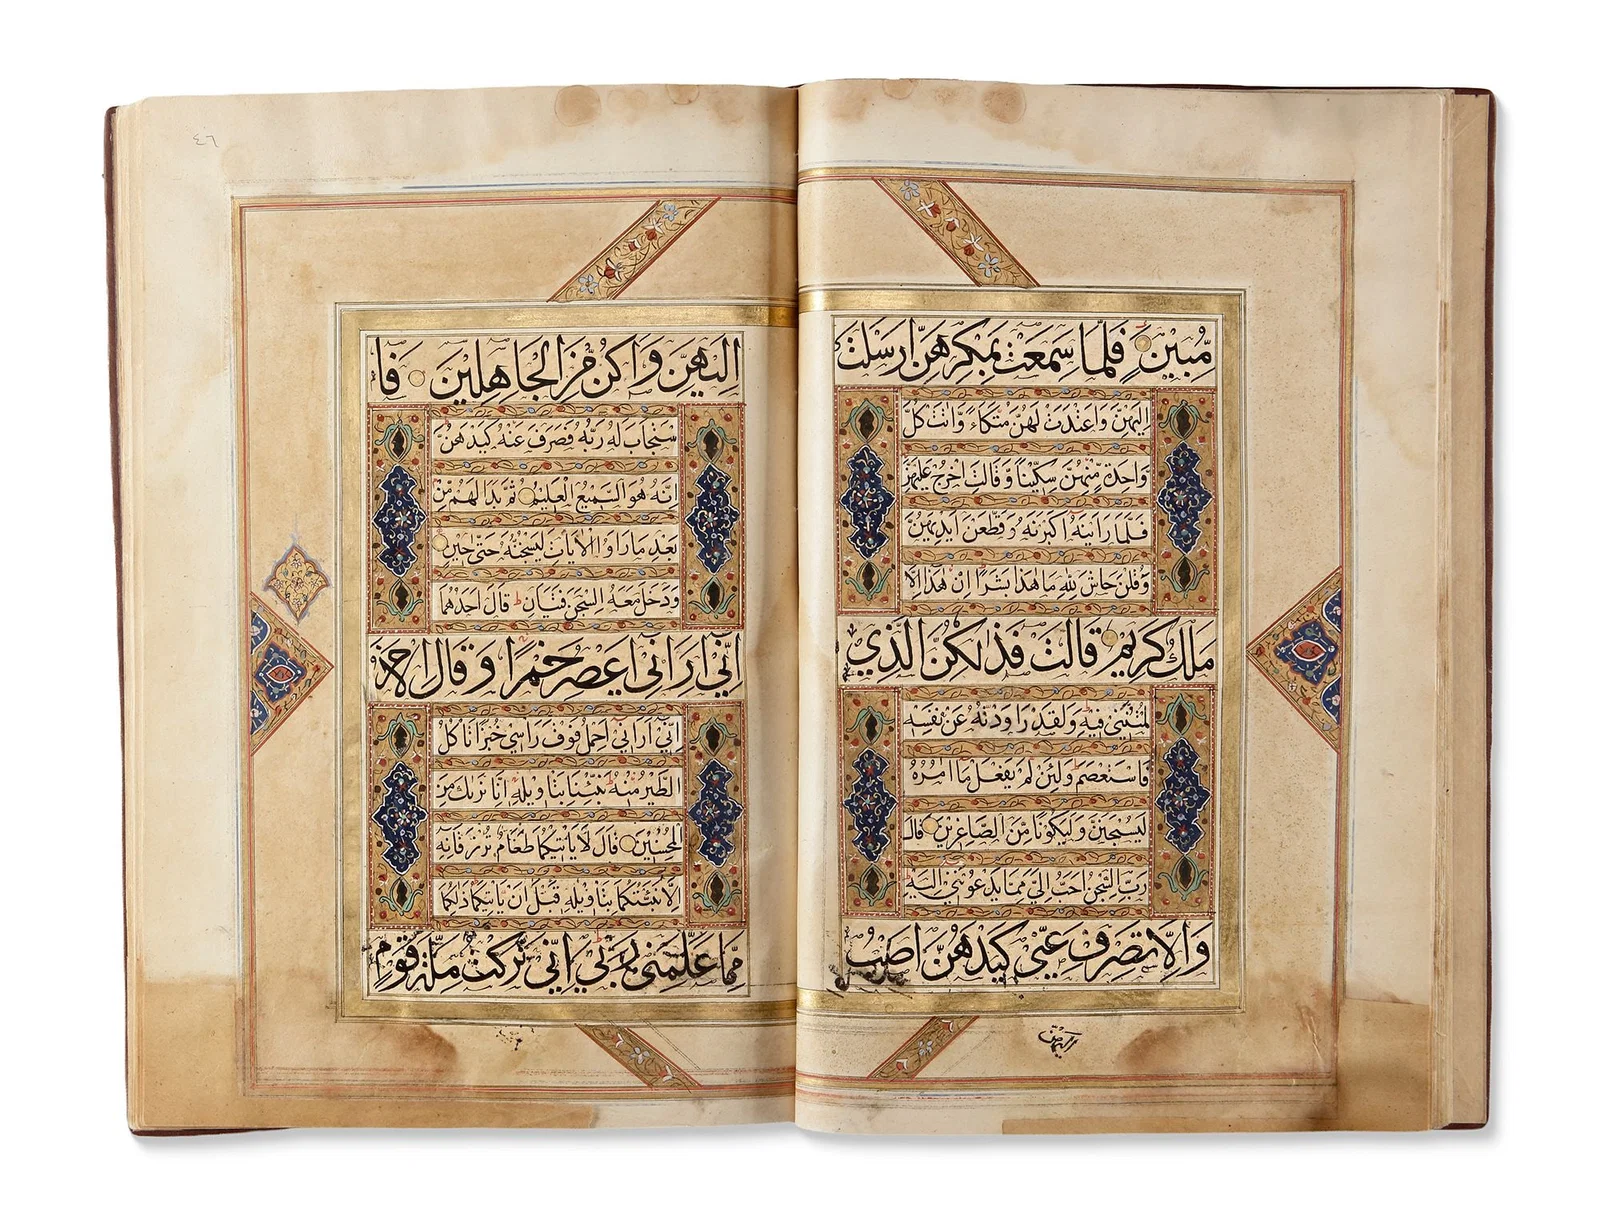 مبين فلما سمعت بمكرهن ارسلت
اليهن واعتدت لهن متكاء واتت كل
واحدة منهن سكينا وقالت اخرج عليهن
فلما راينه اكبرنه وقطعن ايديهن
وقلن حاش لله ما هذا بشرا ان هذا الا
ملك كريم قالت فذلكن الذي
لمتنني فيه ولقد راودته عن نفسه
فاستعصم ولئن لم يفعل ما امره
ليسجنن وليكونا من الصاغرين قال
رب السجن احب الي مما يدعونني اليه
والا تصرف عني كيدهن اصب
اليهن واكن من الجاهلين فا
ستجاب له ربه فصرف عنه كيدهن
انه هو السميع العليم ثم بدا لهم من
بعد ما راوا الايات ليسجننه حتى حين
ودخل معه السجن فتيان قال احدهما
اني اراني اعصر خمرا وقال الاخر
اني اراني احمل فوق راسي خبزا تاكل
الطير منه نبئنا بتاويله انا نريك من
المحسنين قال لا ياتيكما طعام ترزقانه
الا نبئتكما بتاويله قبل ان ياتيكما ذلكما
مما علمني ربي اني تركت ملة قوم
٤٦